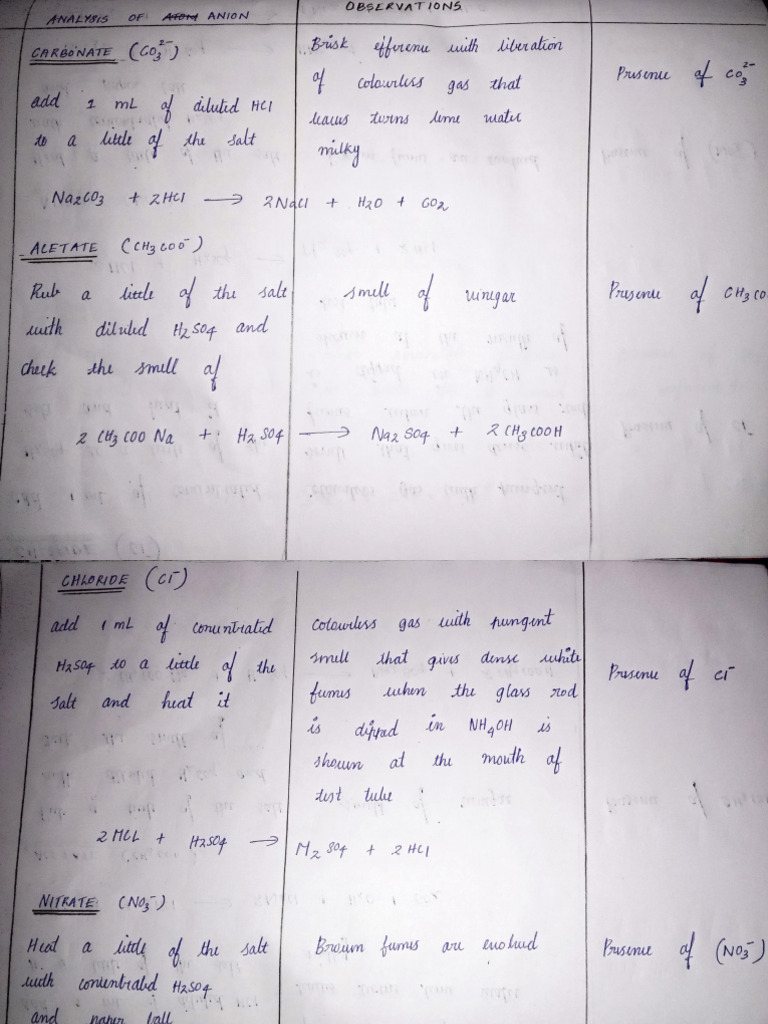 ANALYSIS OF ANION
OBSERVATIONS
CARBONATE (CO₃²⁻)
add 1 mL of diluted HCl
to a little of the salt
Brisk efference with liberation
of colourless gas that
turns lime water
milky
Presence of CO₃²⁻
Na2CO3 + 2HCl → 2NaCl + H2O + CO2
ACETATE (CH3COO⁻)
Rub a little of the salt
with diluted H2SO4 and
check the smell of
smell of vinegar
Presence of CH3CO
2 CH3COO Na + H2SO4 → Na2SO4 + 2CH3COOH
CHLORIDE (Cl⁻)
add 1 mL of concentrated
H2SO4 to a little of the
salt and heat it
colourless gas with pungent
smell that gives dense white
fumes when the glass rod
is dipped in NH4OH is
shown at the mouth of
test tube
Presence of Cl⁻
2 MCL + H2SO4 → M2SO4 + 2HCl
NITRATE (NO3⁻)
Heat a little of the salt
with concentrated H2SO4
and paper ball
Brown fumes are evolved
Presence of (NO3⁻)